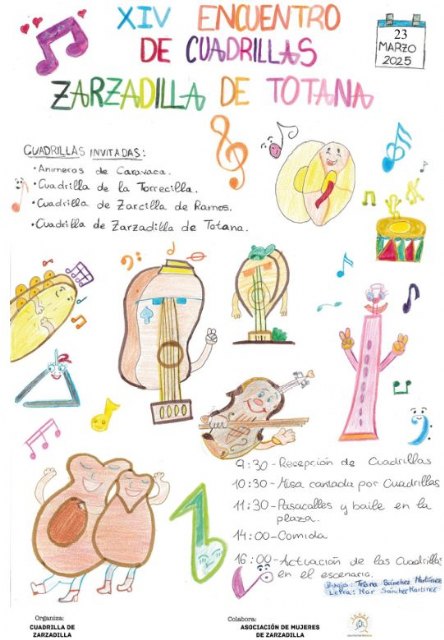 XIV ENCUENTRO
DE CUADRILLAS
ZARZADILLA DE TOTANA
23
MARZO
2025
CUADRILLAS INVITADAS:
• Animeros de Caravaca.
• Cuadrilla de la Torrecilla.
• Cuadrilla de Zarcilla de Ramos.
• Cuadrilla de Zarzadilla de Totana.
9:30 - Recepción de Cuadrillas
10:30 - Misa cantada por Cuadrillas
11:30 - Pasacalles y baile en la
plaza.
14:00 - Comida
16:00 - Actuación de las Cuadrillas
en el escenario.
Dibujo: Sánchez Martínez
Letra: Mar Sánchez Martínez
Organiza:
CUADRILLA DE
ZARZADILLA
Colabora:
ASOCIACIÓN DE MUJERES
DE ZARZADILLA